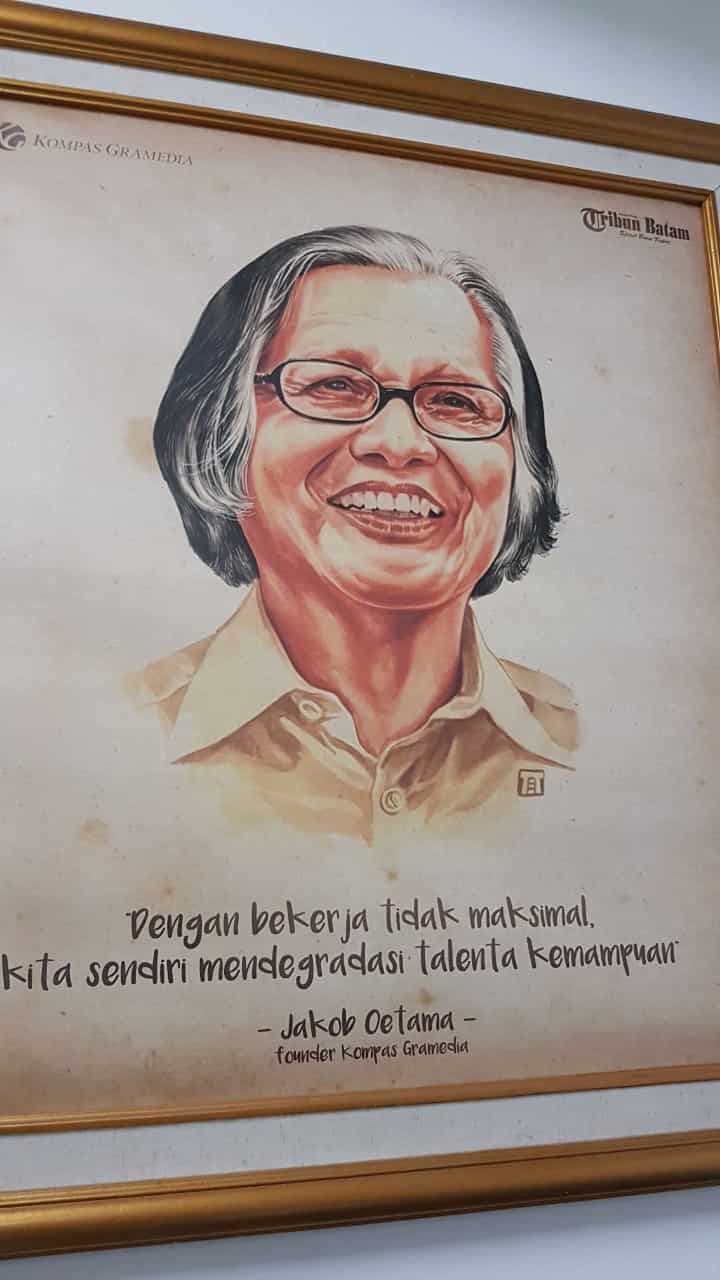 KOMPAS GRAMEDIA
Tribun Batam
"Dengan bekerja tidak maksimal,
kita sendiri mendegradasi talenta kemampuan"
- Jakob Oetama -
founder Kompas Gramedia